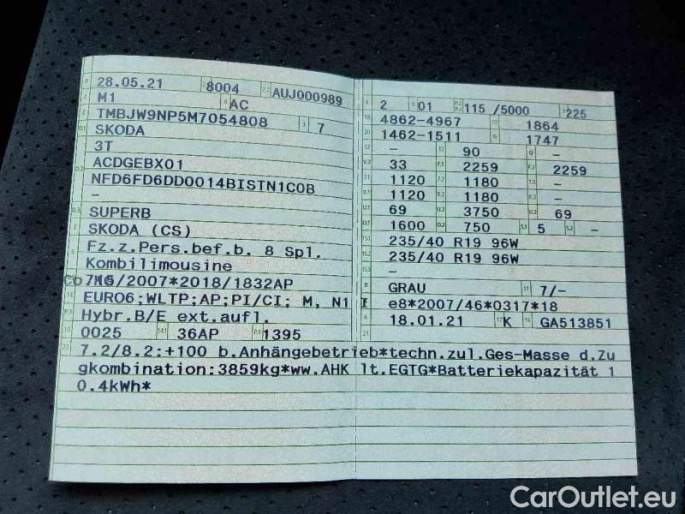 28.05.21 8004 AUJ000989
M1 AC
TMBJW9NP5M7054808 7
SKODA
3T
ACDGEBX01
NFD6FD6DD0014BISTN1C0B
–
SUPERB
SKODA (CS)
Fz.z.Pers.bef.b. 8 Spl.
Kombilimousine
715/2007*2018/1832AP
EURO6;WLTP;AP;PI/CI; M, N1 I
Hybr.B/E ext.aufl.
0025 36AP 1395
2 01 115 /5000 225
4862-4967 – 1864
1462-1511 1747
– 90 –
33 2259 2259
1120 1180 –
1120 1180 –
69 3750 69
1600 750 5 –
235/40 R19 96W
235/40 R19 96W
–
GRAU 7/–
e8*2007/46*0317*18
18.01.21 K GA513851
7.2/8.2:+100 b.Anhängebetrieb*techn.zul.Ges-Masse d.Zu
gkombination:3859kg*ww.AHK lt.EGTG*Batteriekapazität 1
0.4kWh*
CarOutlet.eu